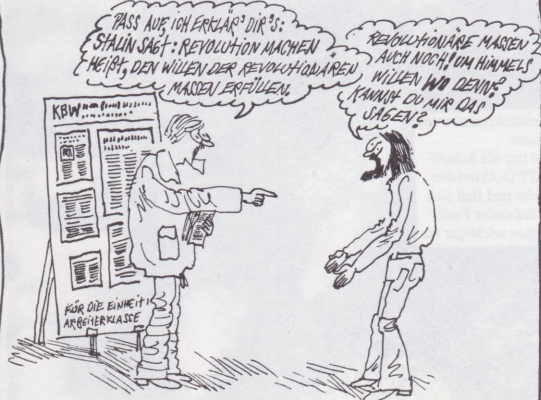 PASS AUF, ICH ERKLÄR' DIR'S:
STALIN SAGT: REVOLUTION MACHEN
HEIßT, DEN WILLEN DER REVOLUTIONÄREN
MASSEN ERFÜLLEN.
REVOLUTIONÄRE MASSEN
AUCH NOCH! UM HIMMELS
WILLEN WO DENN?
KANNST DU MIR DAS
SAGEN?
KBW
FÜR DIE EINHEIT
ARBEITERKLASSE